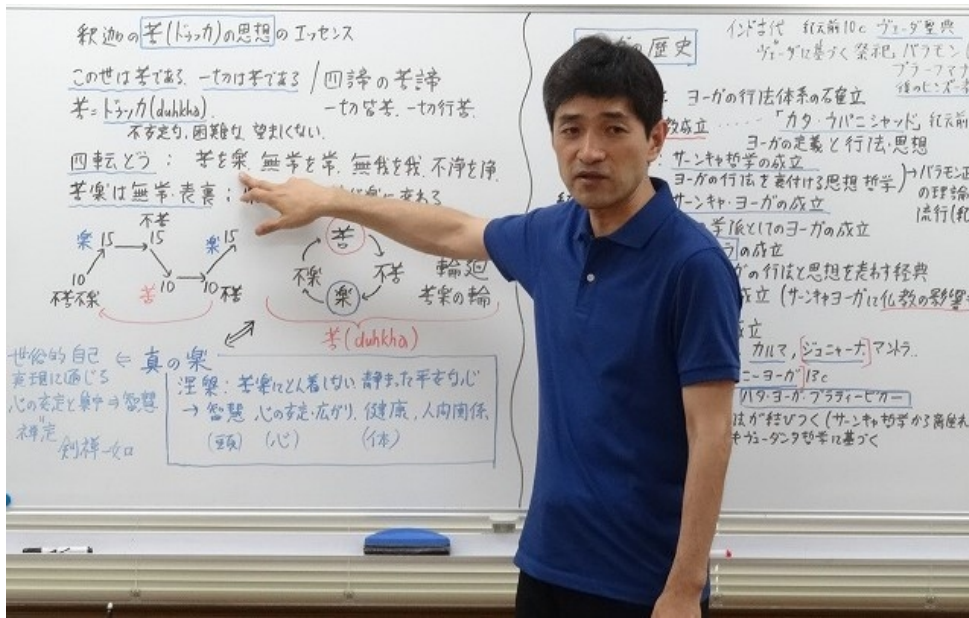 釈迦の苦(ドゥッカ)の思想のエッセンス
この世は苦である、一切は苦である / 四諦の苦諦
苦=ドゥッカ(duhkha)
一切皆苦、一切行苦、
不安定な、困難な、望ましくない、
四転どう: 苦を楽、無常を常、無我を我、不浄を浄、
苦楽は無常・表裏;
変わる
不苦
楽 15 → 15 楽 15
10 10 10
不苦不楽 苦 不苦
苦
不楽 不苦
楽
輪廻
苦楽の輪
苦(duhkha)
世俗的自己
実現に通じる
心の安定と集中⇒智慧
禅定
剣禅一如
⇐ 真の楽
涅槃:苦楽にとん着しない静まった平らな心
→ 智慧 心の安定・広がり、健康、人間関係
(頭) (心) (体)
の歴史
インド古代 紀元前10c ヴェーダ聖典
ヴェーダに基づく祭祀、バラモン
ブラーフマナ
後のヒンズー
ヨーガの行法体系の確立
成立 ‥‥‥ 「カタ・ウパニシャッド」紀元前
ヨーガの定義と行法・思想
サーンキャ哲学の成立
ヨーガの行法を裏付ける思想哲学)→バラモン正
サーンキャ・ヨーガの成立
の理論
流行(紀
学派としてのヨーガの成立
ラの成立
の行法と思想を表わす経典
成立 (サーンキャヨーガに仏教の影響
成立
カルマ, ジュニャーナ, マントラ‥
ニーヨーガ 13c
ハタ・ヨーガ・プラディーピカー
法が結びつく(サーンキャ哲学から離
ヴェーダンタ哲学に基づく